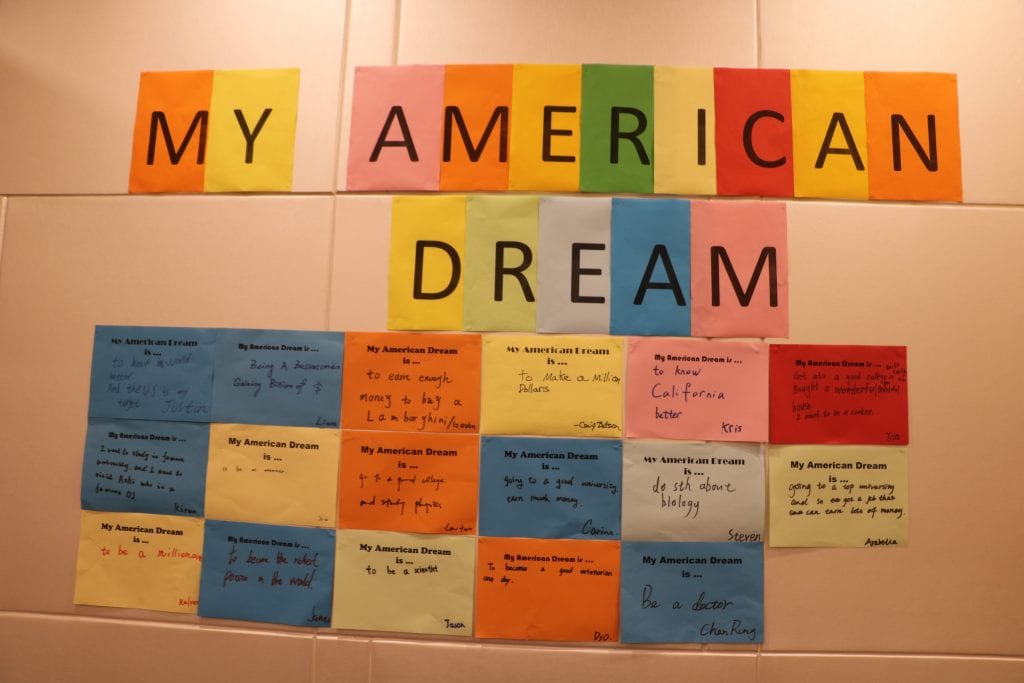 MY AMERICAN
DREAM
My American Dream
is ...
to know world
better.
And the US is my
target
Justin
My American Dream is ...
Being A Businessman
Gaining Billion of $
Liam
My American Dream
is ...
to earn enough
money to buy a
Lamborghini/Gavin
My American Dream
is ...
To Make a Million
Dollars
My American Dream is ...
to know
California
better
Kris
My American Dream is ...
Get into a good college in
Bought a
house
I want to be a
Tom
My American Dream is ...
I want to study in famous
university, and I want to
visit who is a
famous DJ
Kiran
My American Dream
is ...
to be a
My American Dream
is ...
go to a good college
and study physics
My American Dream
is ...
going to a good university
earn much money.
Carina
My American Dream
is ...
do sth about
biology
Steven
My American Dream
is ...
Going to a top university
and so get a job that
can earn lots of money.
Arabella
My American Dream
is ...
to be a millionaire
My American Dream
is ...
To become the richest
person in the world.
June
My American Dream
is ...
to be a scientist
Jason
My American Dream is ...
To become a good veterinarian
one day.
My American Dream
is ...
Be a doctor